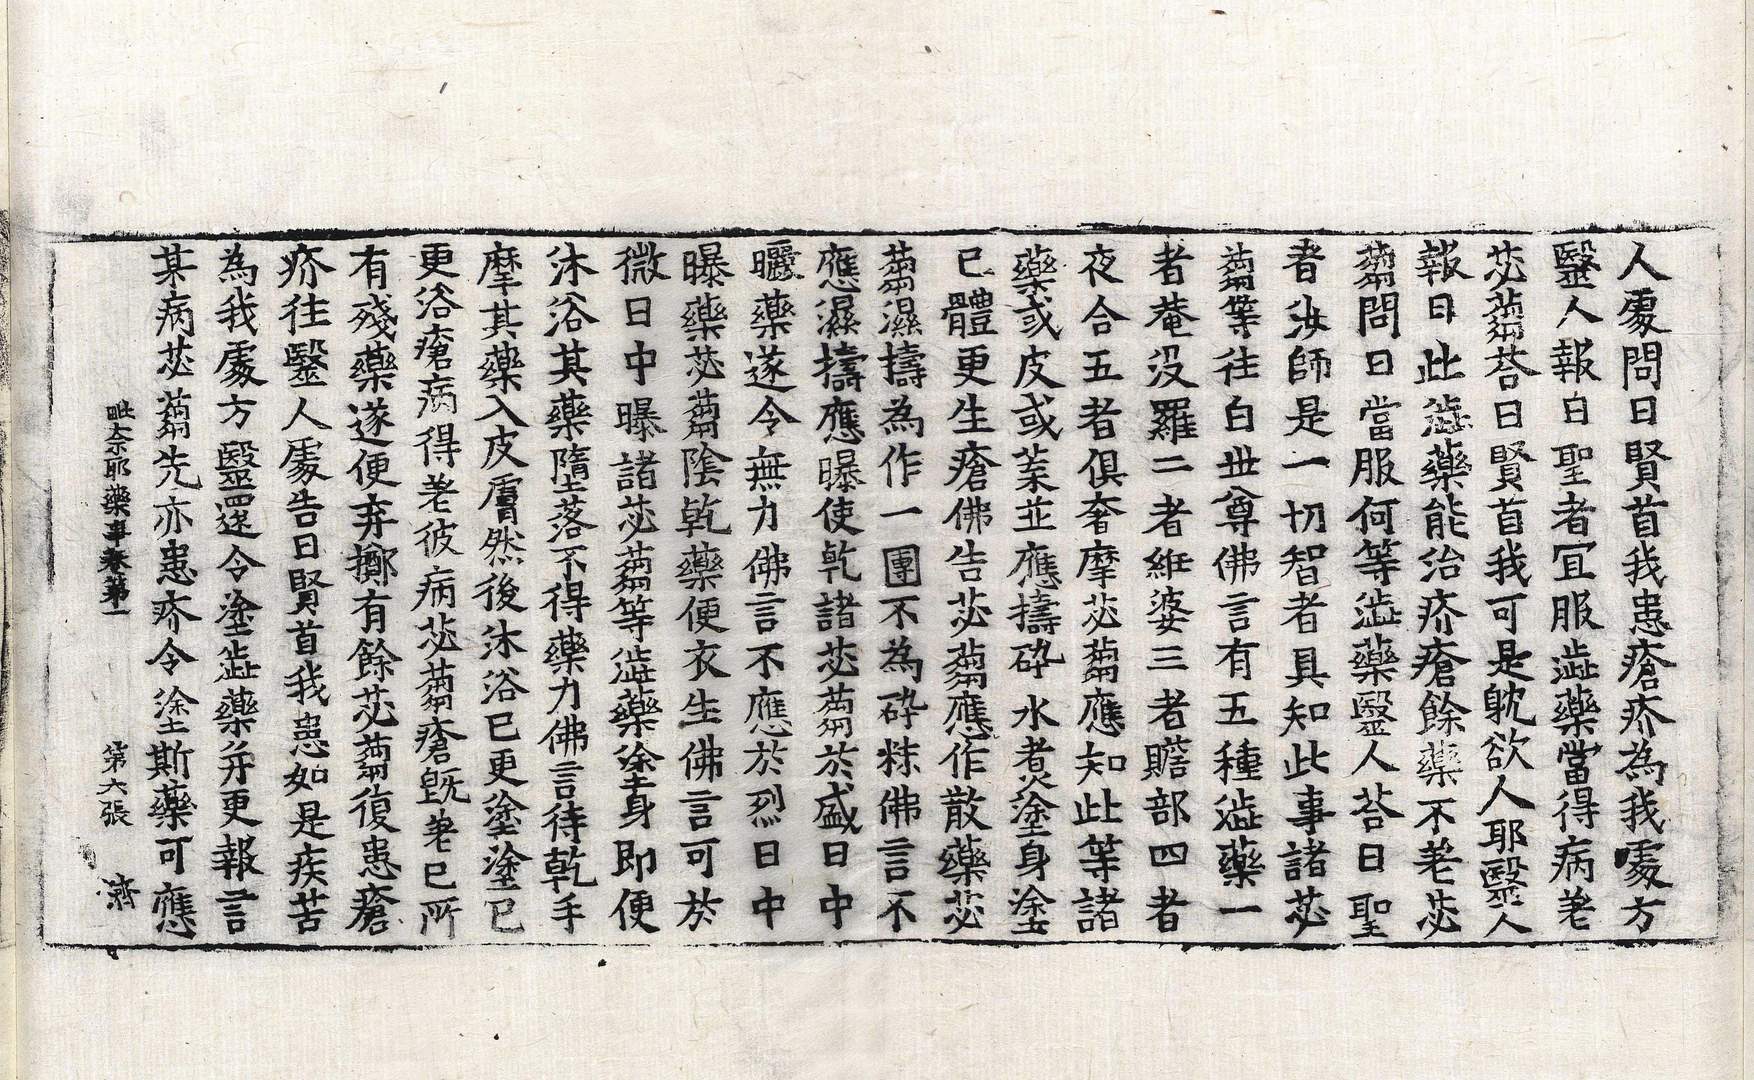 人處問曰賢首我患瘡疥為我處方
毉人報曰聖者宜服澁藥當得病差
苾蒭荅曰賢首我可是躭欲人耶毉人
報曰此澁藥能治疥瘡餘藥不差苾
蒭問曰當服何等澁藥毉人荅曰聖
者汝師是一切智者具知此事諸苾
蒭等往白世尊佛言有五種澁藥一
者菴没羅二者紝婆三者贍部四者
夜合五者俱奢摩苾蒭應知此等諸
藥或皮或葉並應擣碎水煮塗身塗
已體更生瘡佛告苾蒭應作散藥苾
蒭濕擣為作一團不為碎粖佛言不
應濕擣應曝使乾諸苾蒭於盛日中
曬藥遂令無力佛言不應於烈日中
曝藥苾蒭陰乾藥便衣生佛言可於
微日中曝諸苾蒭等澁藥塗身即便
沐浴其藥墮落不得藥力佛言待乾手
摩其藥入皮膚然後沐浴已更塗塗已
更浴瘡病得差彼病苾蒭瘡旣差已所
有殘藥遂便弃擲有餘苾蒭復患瘡
疥往毉人處告曰賢首我患如是疾苦
為我處方毉還令塗澁藥并更報言
某病苾蒭先亦患疥令塗斯藥可應
毗奈耶藥事卷第一　第六張　濟